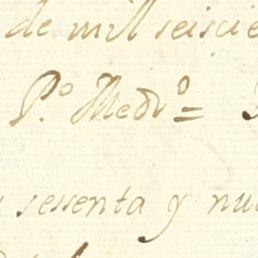 de mil seiscie
P.º Medr.º =
sesenta y nu